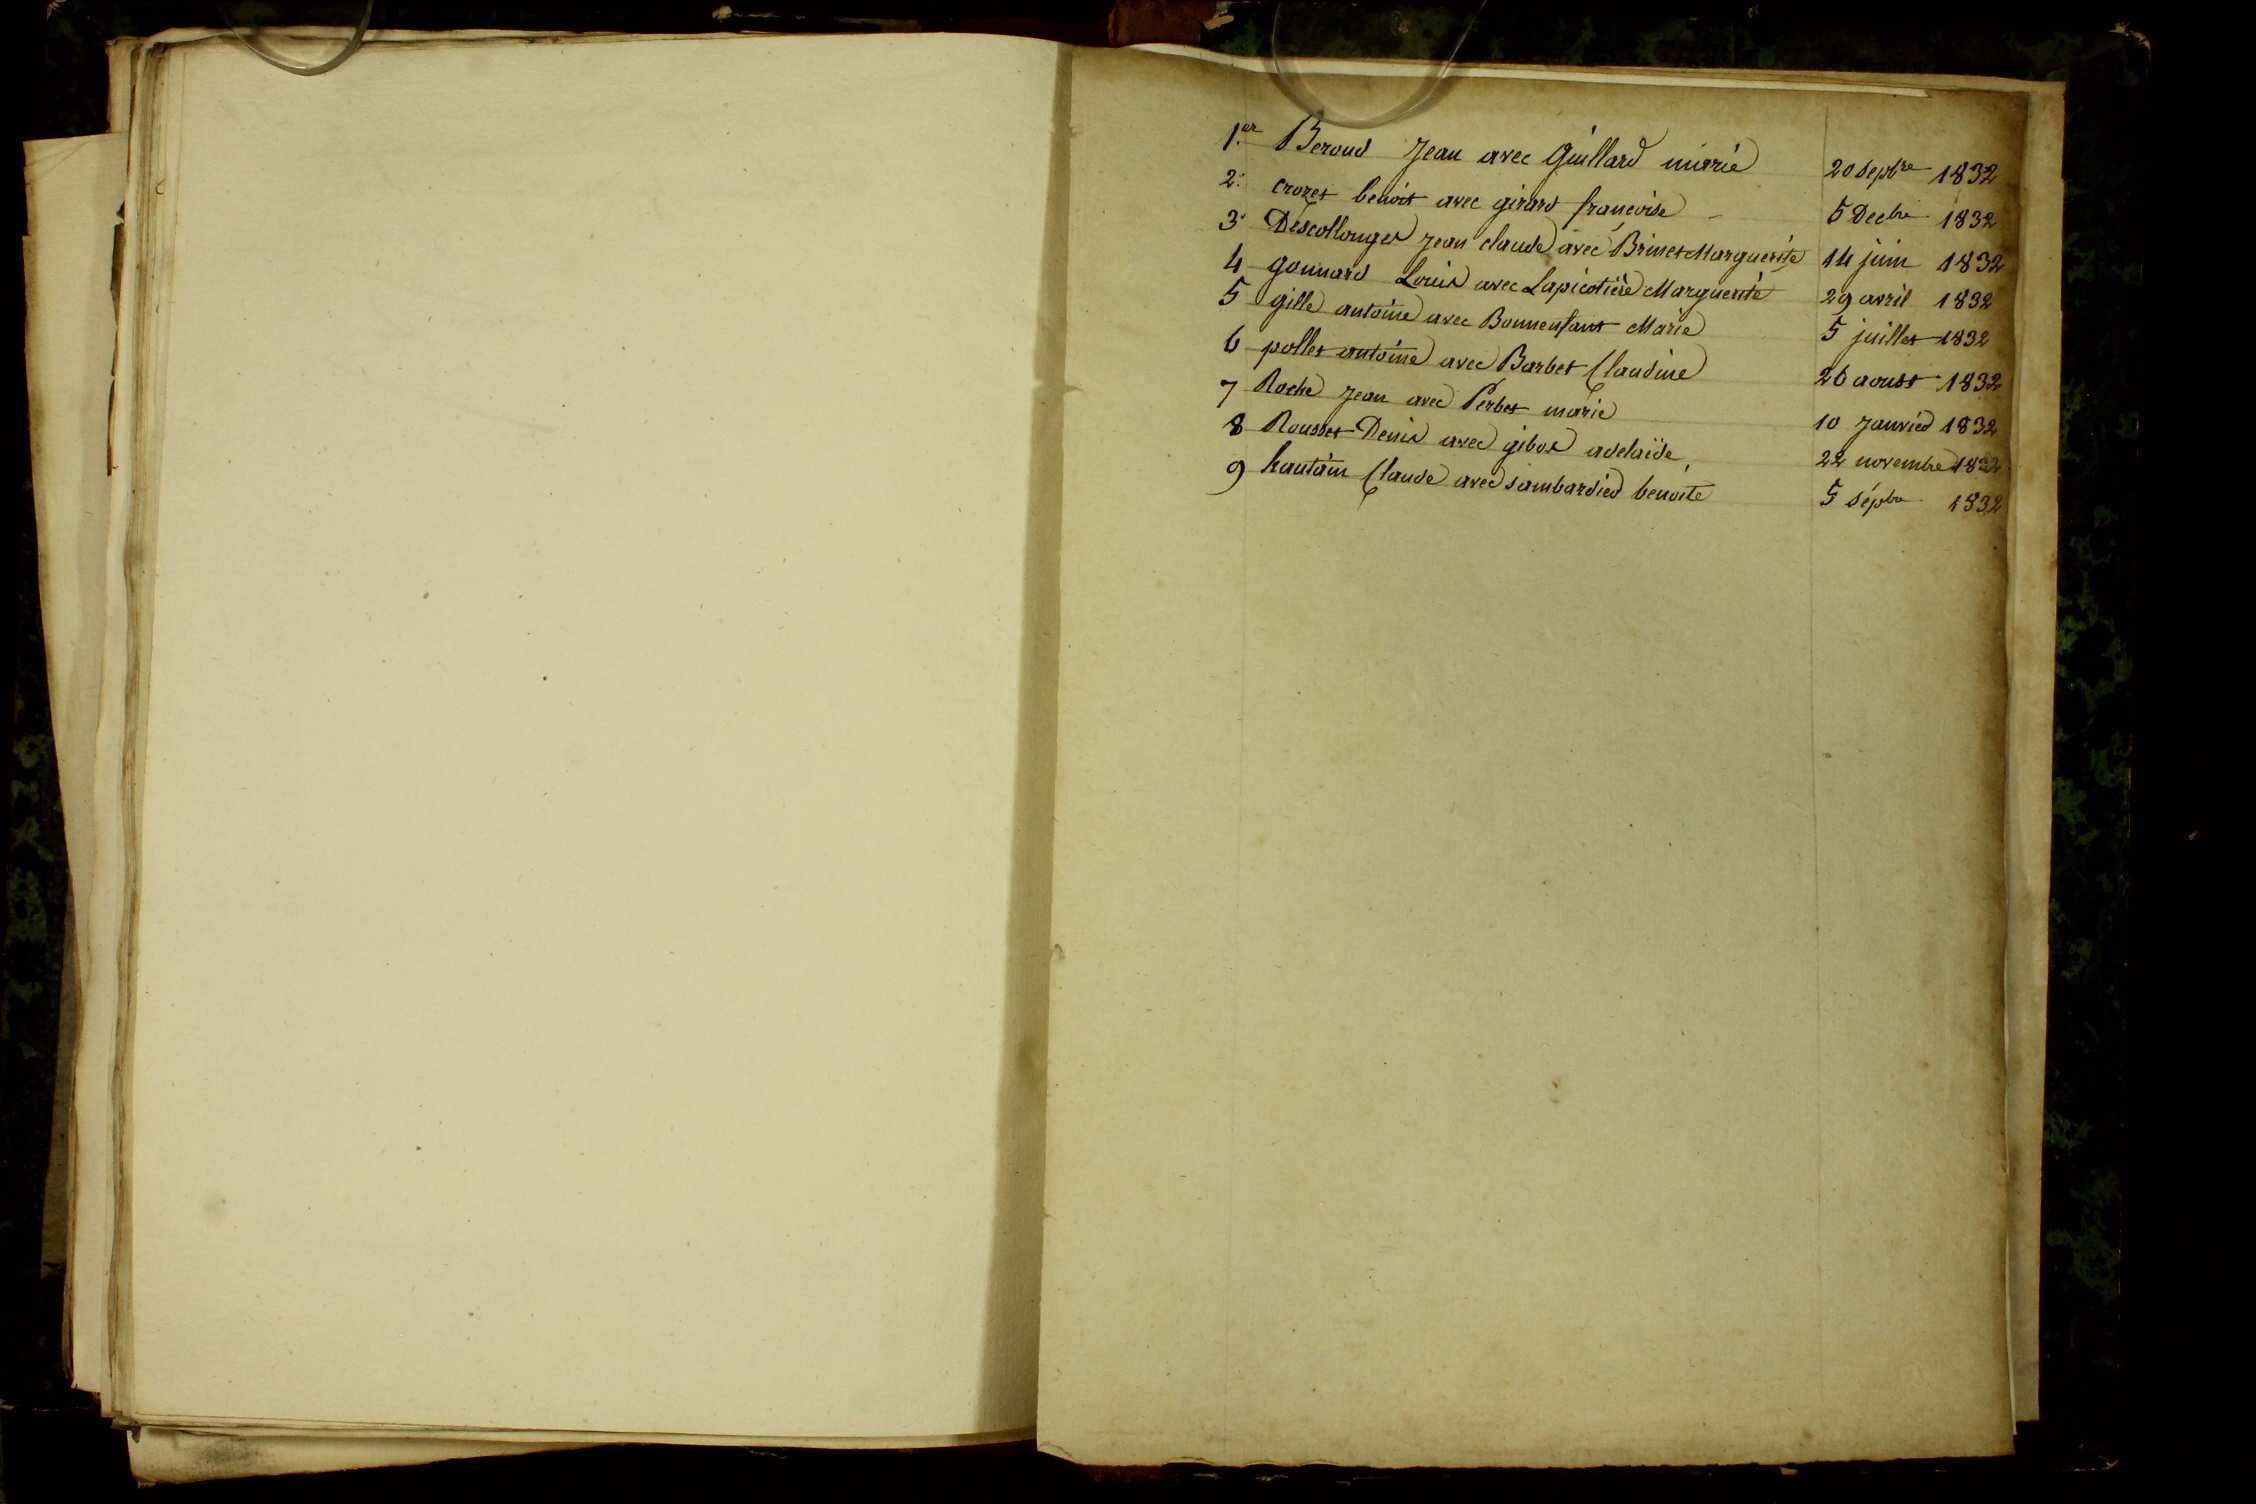 1.er Beroud Jean avec Guillard marie 20 Septre 1832
2. crozet benoit avec girard francoise 5 Decbre 1832
3. Descollonges Jean claude avec Brinet Marguerite 14 juin 1832
4 gonnard Louis avec Lapicotière Marguerite 29 avril 1832
5 gille antoine avec Bonnenfant Marie 5 juillet 1832
6 pollet antoine avec Barbet Claudine 26 aoust 1832
7 Roche Jean avec Perbet marie 10 Janvier 1832
8 Rousset Denis avec gibos adelaïde 22 novembre 1832
9 hautain Claude avec sambardier benoite 5 sépbre 1832